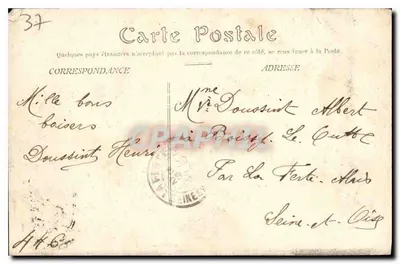 37
Carte Postale
Quelques pays étrangers n'acceptent pas la correspondance de ce côté, se renseigner à la Poste.
CORRESPONDANCE
ADRESSE
Mille bons
baisers
Doussint Henri
Mme Ve Doussint Albert
à Boissy Le Cutté
Par La Ferte Alais
Seine-et-Oise